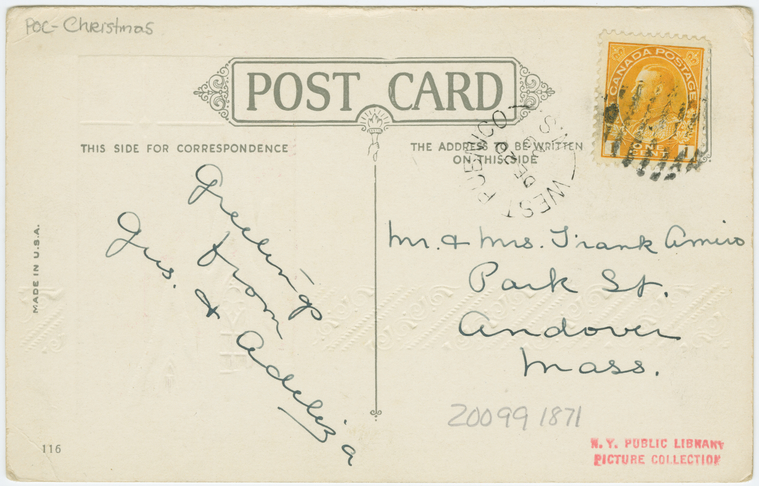 POC-Christmas
POST CARD
CANADA POSTAGE
1 1
THIS SIDE FOR CORRESPONDENCE
THE ADDRESS TO BE WRITTEN
ON THIS SIDE
WEST PUBNICO
N.S.
DE
Greetings
from
Gus. & Adeliza
Mr. & Mrs. Frank Amiro
Park St.
Andover
Mass.
MADE IN U.S.A.
20099 1871
116
N.Y. PUBLIC LIBRARY
PICTURE COLLECTION